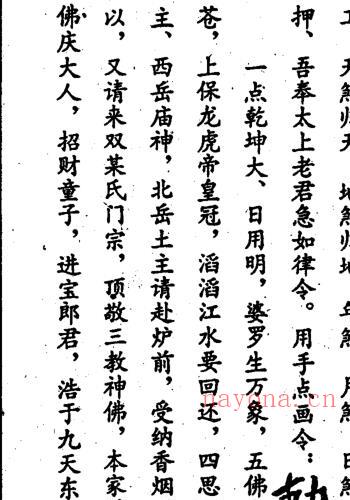 天煞归天 地煞归地 年煞 月煞 日煞
押、吾奉太上老君急如律令。用手点画令：
一点乾坤大、日用明，婆罗生万象，五佛
苍，上保龙虎帝皇冠，滔滔江水要回还，四思
主、西岳庙神，北岳土主请赴炉前，受纳香烟
以，又请来双某氏门宗，顶敬三教神佛，本家
佛庆大人，招财童子，进宝郎君，浩于九天东
nayona.cn